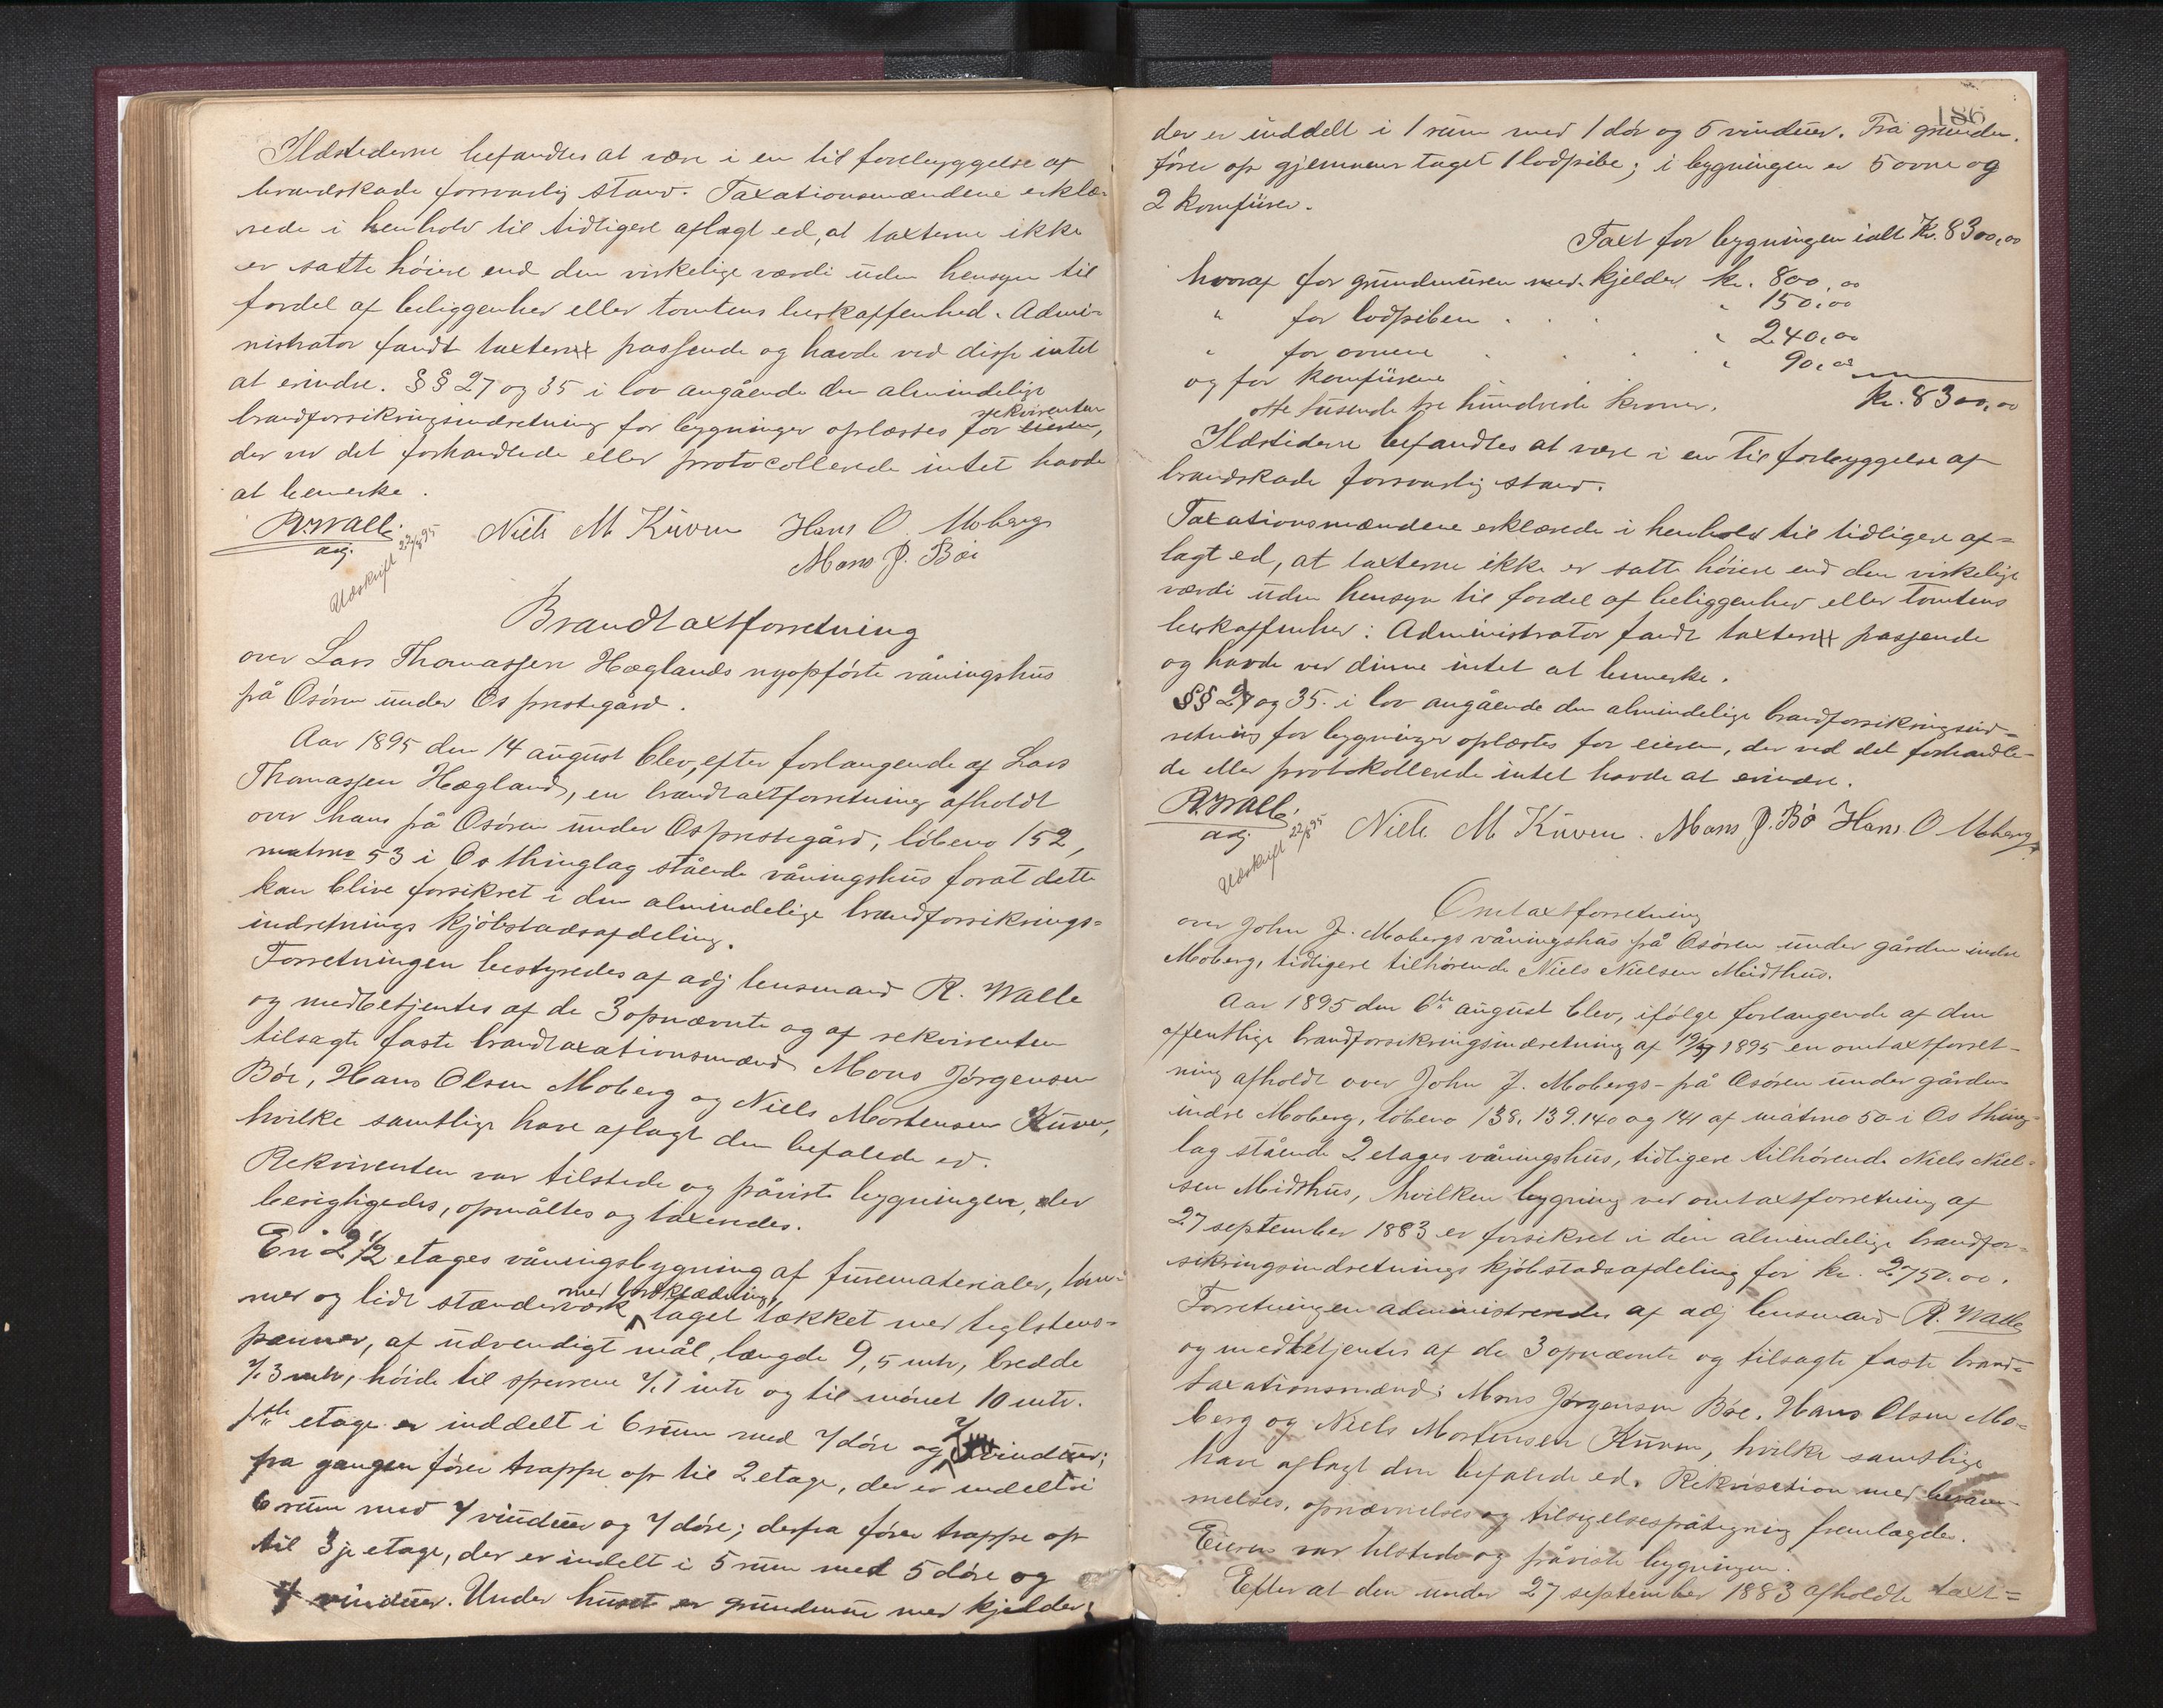 Ildstederne befandtes at være i en til forebyggelse af
brandskade forsvarlig stand. Taxationsmændene erklæ-
rede i henhold til tidligere aflagt ed, at taxterne ikke
er satte höiere end den virkelige værdi uden hensyn til
fordel af beliggenhed eller tomtens beskaffenhed. Admi-
nistrator fandt taxten passende og havde ved disse intet
at erindre. §§ 27 og 35 i lov angående den almindelige
brandforsikringsindretning for bygninger oplæstes for rekvirenten,
der ved det forhandlede eller protocollerede intet havde
at bemerke.
R. Walle
adj.
Niels M Kuven Hans O. Moberg
Mons J. Böe
Udskrift 22/8 95
Brandtaxtforretning
over Lars Thomassen Hæglands nyopförte våningshus
på Osören under Os prestegård.
Aar 1895 den 14 august blev, efter forlangende af Lars
Thomassen Hægland, en brandtaxtforretning afholdt
over hans på Osören under Os prestegård, löbeno 152,
matrno 53 i Os thinglag stående våningshus forat dette
kan blive forsikret i den almindelige brandforsikrings-
indretnings kjöbstadsafdeling.
Forretningen bestyredes af adj lensmand R. Walle
og medbetjentes af de 3 opnævnte og af rekvirenten
tilsagte faste brandtaxationsmænd Mons Jörgensen
Böe, Hans Olsen Moberg og Niels Mortensen Kuven,
hvilke samtlige have aflagt den befalede ed.
Rekvirenten var tilstede og påviste bygningen, der
besigtigedes, opmåltes og taxeredes.
En 2 1/2 etages våningsbygning af furematerialer, töm-
mer og lidt stænderværk med bordklædning, taget tækket med teglstens-
panner, af udvendigt mål, længde 9,5 mtr, bredde
7.3 mtr, höide til sperrene 7.1 mtr og til mönet 10 mtr.
1ste etage er inddelt i 6 rum med 7 döre og 7 vinduer;
fra gangen förer trappe op til 2 etage, der er indelt i
6 rum med 7 vinduer og 7 döre; derfra förer trappe op
til 3je etage, der er indelt i 5 rum med 5 döre og
4 vinduer. Under huset er grundmur med kjelder,
186
der er inddelt i 1 rum med 1 dör og 5 vinduer. Fra grunden
förer op gjennem taget 1 lodpibe; i bygningen er 5 ovne og
2 komfürer.
Taxt for bygningen ialt Kr. 8300,00
hvoraf for grundmuren med kjelder kr. 800,00
" for lodpiben . . . " 150,00
" for ovnene . . . " 240,00
og for komfürene . . " 90,00
otte tusende tre hundrede kroner. kr. 8300,00
Ildstederne befandtes at være i en til forbyggelse af
brandskade forsvarlig stand.
Taxationsmændene erklærede i henhold til tidligere af-
lagt ed, at taxterne ikke er satte höiere end den virkelige
værdi uden hensyn til fordel af beliggenhed eller tomtens
beskaffenhed: Administrator fandt taxten passende
og havde ved dinne intet at bemerke.
§§ 27 og 35. i lov angående den almindelige brandforsikringsind-
retning for bygninger oplæstes for eieren, der ved det forhandle-
de eller protokollerede intet havde at erindre.
R. Walle
adj
Niels M Kuven. Mons J. Bö Hans O Moberg
Udskrift 22/8 95
Omtaxtforretning
over John J. Mobergs våningshus på Osören under gården indre
Moberg, tidligere tilhörende Niels Nielsen Midthus.
Aar 1895 den 6te august blev, ifölge forlangende af den
offentlige brandforsikringsindretning af 19/7 1895 en omtaxtforret-
ning afholdt over John J. Mobergs - på Osören under gården
indre Moberg, löbeno 138. 139. 140 og 141 af matrno 50 i Os thing-
lag stående 2 etages våningshus, tidligere tilhörende Niels Niel-
sen Midthus, hvilken bygning ved omtaxtforretning af
27 september 1883 er forsikret i den almindelige brandfor-
sikringsindretnings kjöbstadsafdeling for kr. 2750.00.
Forretningen administreredes af adj lensmand R. Walle
og medbetjentes af de 3 opnævnte og tilsagte faste brand-
taxationsmænd: Mons Jörgensen Böe, Hans Olsen Mo-
berg og Niels Mortensen Kuven, hvilke samtlige
have aflagt den befalede ed. Rekvisition med beram-
melses, opnævnelses og tilsigelsespåtegning fremlagdes.
Eieren var tilstede og påviste bygningen.
Efter at den under 27 september 1883 afholdte taxt-